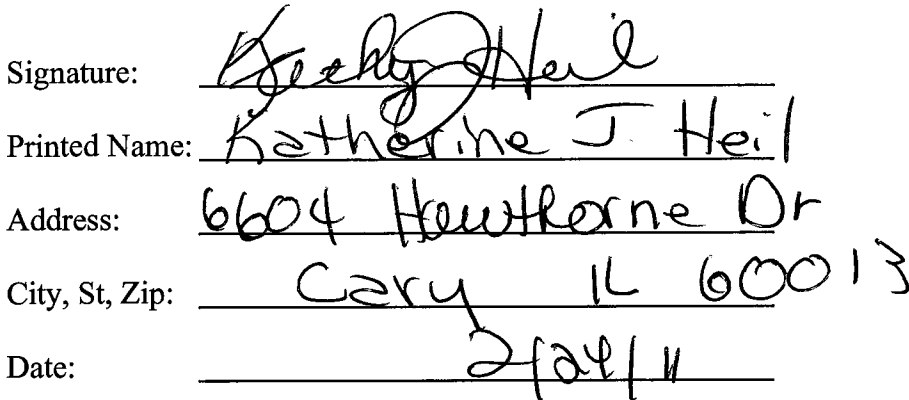 Signature: Kathy J Heil
Printed Name: Katherine J. Heil
Address: 6604 Hawthorne Dr
City, St, Zip: Cary IL 60013
Date: 2/24/11